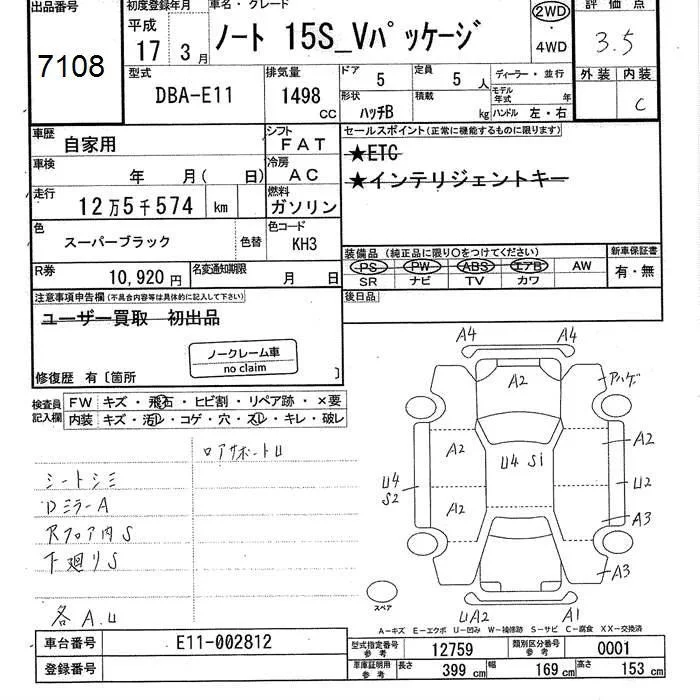 出品番号
7108
初度登録年月
平成
17 3月
車名・グレード
ノート 15S_Vパッケージ
2WD
・
4WD
評価点
3.5
外装 内装
C
型式
DBA-E11
排気量
1498 CC
ドア 5
形状 ハッチB
定員 5 人
積載 kg
ディーラー・並行
モデル年式 年
ハンドル 左・右
車歴 自家用
シフト FAT
車検 年 月( 日)
冷房 AC
走行 12万5千574 km
燃料 ガソリン
色 スーパーブラック 色替
色コード KH3
R券 10,920円
名変通知期限 月 日
セールスポイント(正常に機能するものに限ります)
★ETC
★インテリジェントキー
装備品 (純正品に限り○をつけてください)
PS PW ABS エアB AW
SR ナビ TV カワ
新車保証書
有・無
後日品
注意事項申告欄(不具合内容等は具体的に記入して下さい)
ユーザー買取 初出品
ノークレーム車
no claim
修復歴 有〔箇所 〕
検査員記入欄
FW キズ・飛石・ヒビ割・リペア跡・×要
内装 キズ・汚レ・コゲ・穴・スレ・キレ・破レ
ロアサポートU
シートシミ
DミラーA
Rフロア内S
下廻りS
各A.U
A4 A4
A2
アハゲ
A2
A2
U4 Si
U4
S2
U2
A2
A3
A3
UA2 A1
スペア
A-キズ E-エクボ U-凹み W-補修跡 S-サビ C-腐食 XX-交換済
車台番号 E11-002812
登録番号
型式指定番号 参考 12759
類別区分番号 参考 0001
車庫証明用 参考
長さ 399 cm
幅 169 cm
高さ 153 cm